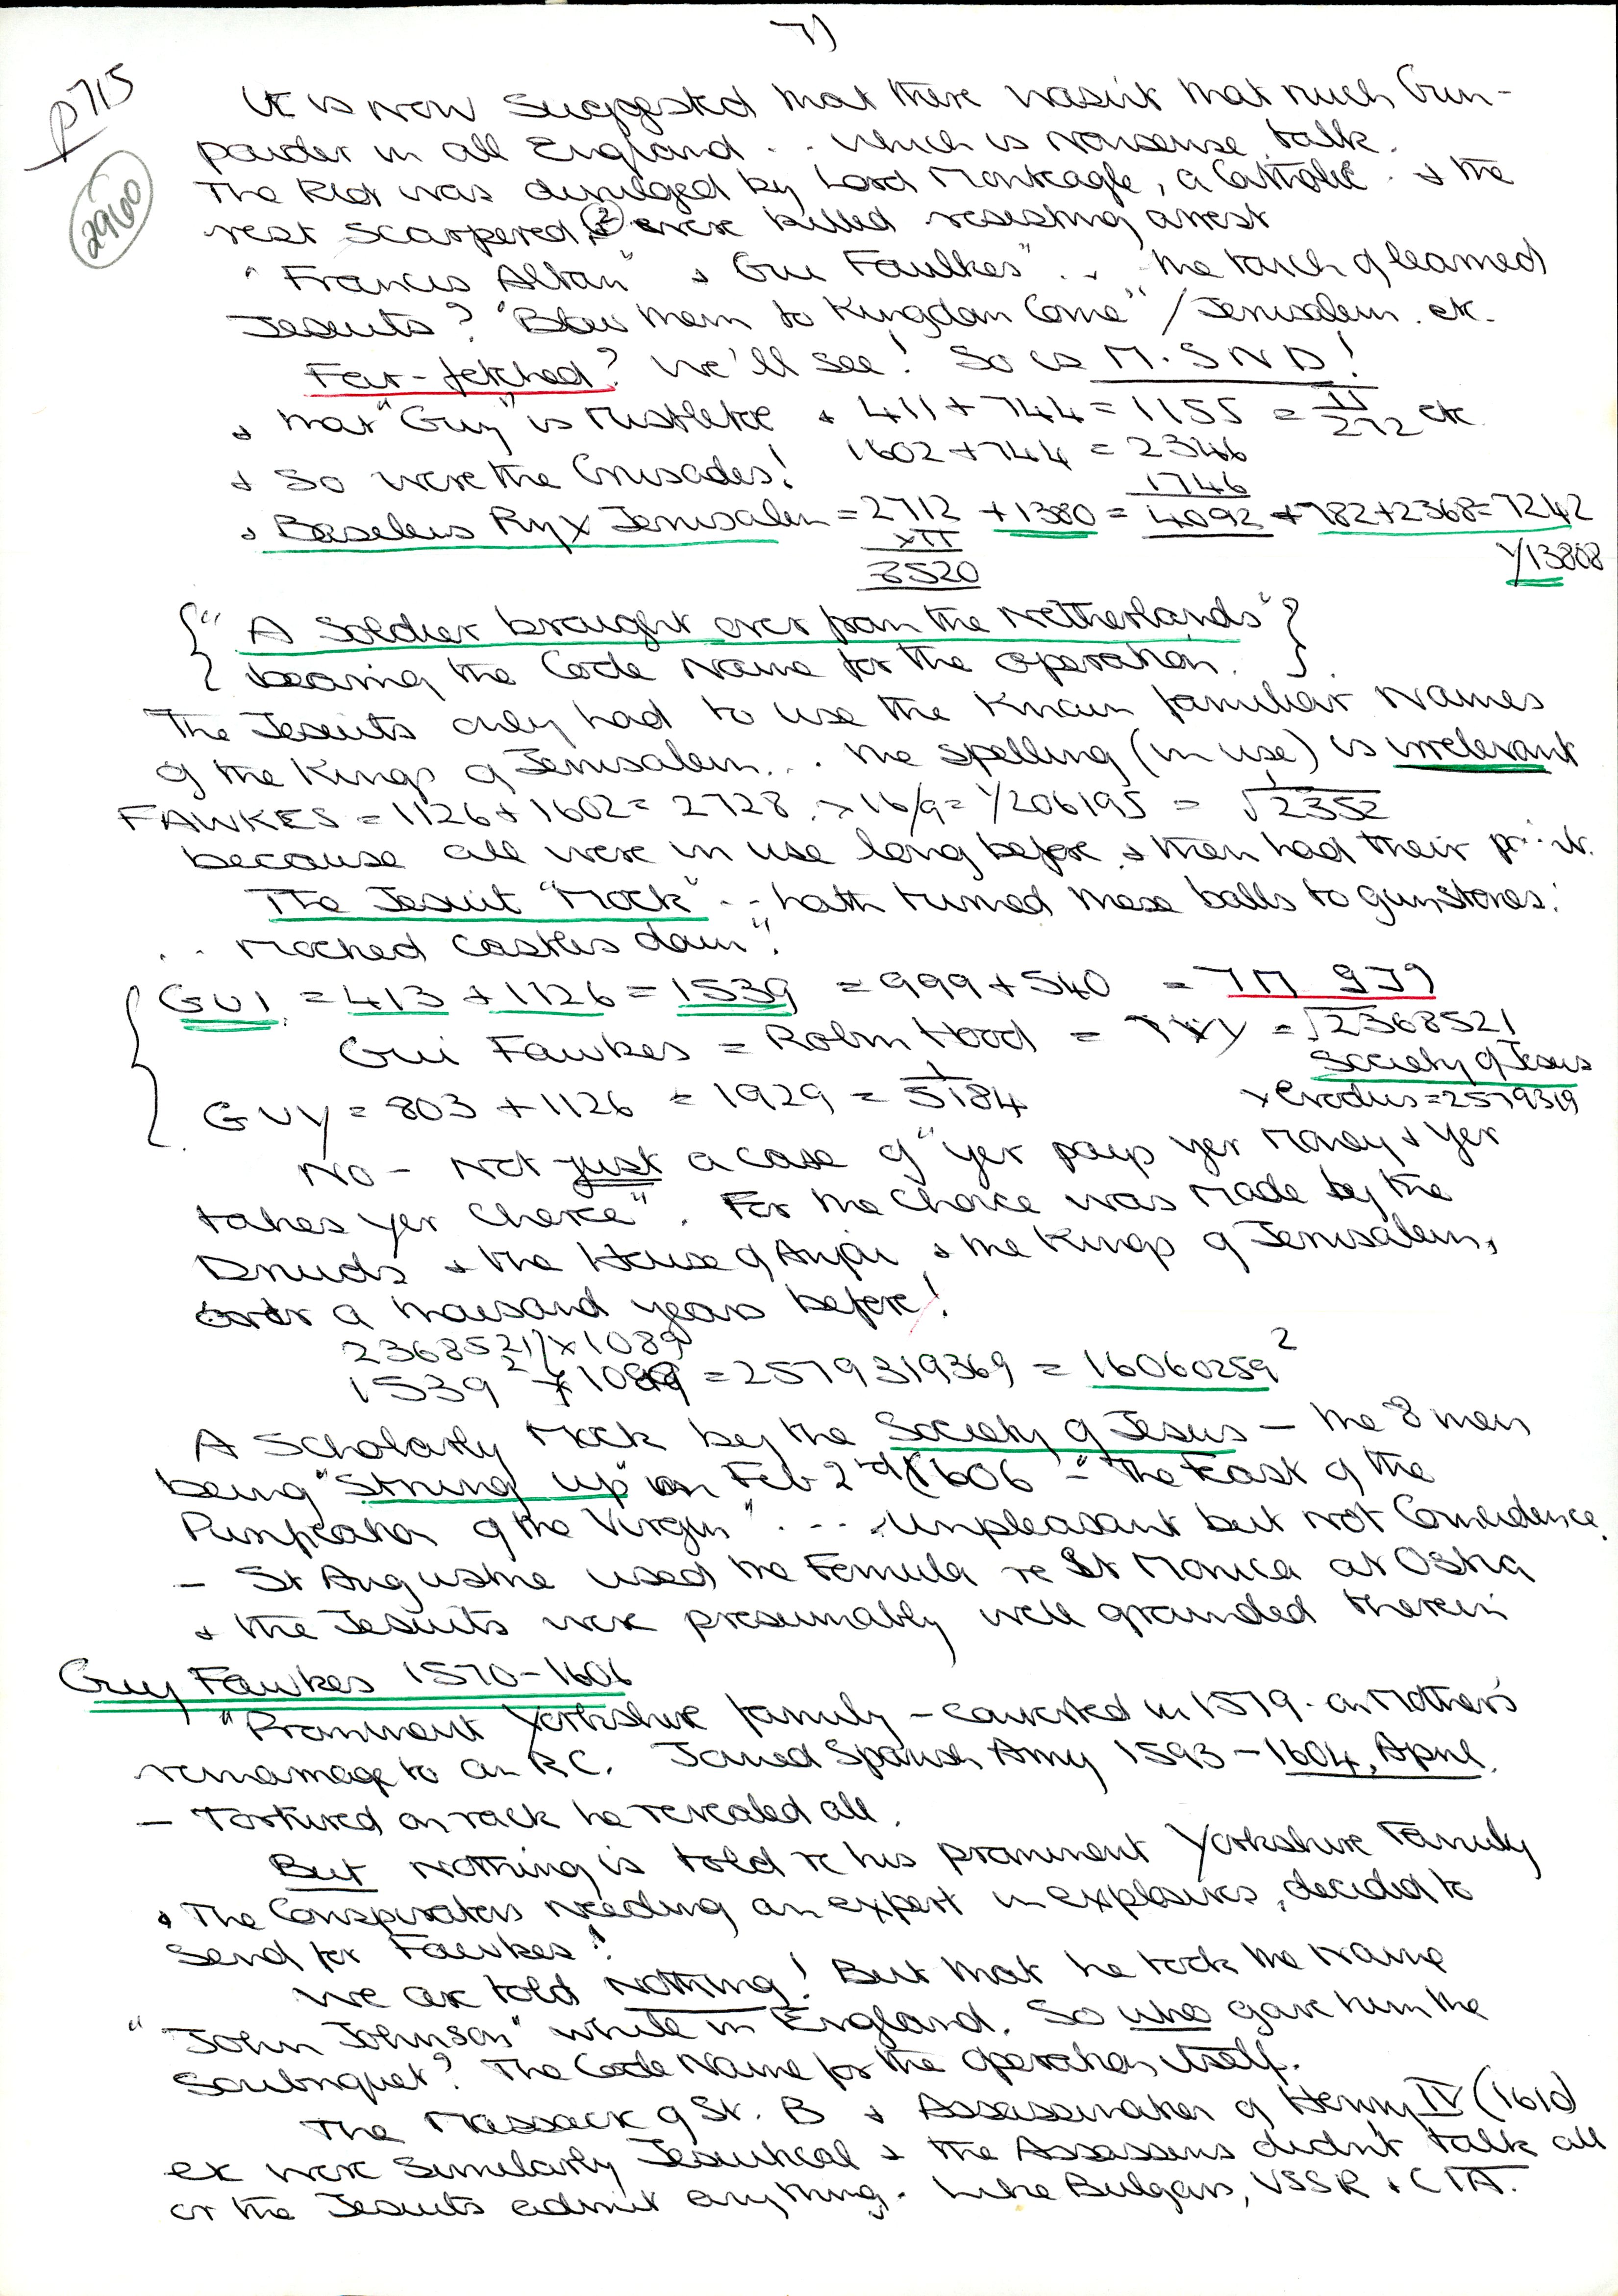 7)
p715
2960
It is now suggested that there wasn't that much Gun-
powder in all England .. which is nonsense talk.
The Plot was divulged by Lord Monteagle, a Catholic. & the
rest scarpered, ② were killed resisting arrest
"Francis Alban" & Gui Faulkes" .. the touch of learned
Jesuits? "Blow them to Kingdom Come" / Jerusalem. etc.
Far-fetched? We'll see! So is M.S N D!
& that "Guy" is Mistletoe & 411 + 744 = 1155 = π/272 etc
1602 + 744 = 2346
& so were the Crusades!
1746
& Basileus Ryx Jerusalem = 2712 + 1380 = 4092 + 782 + 2368 = 7242
xπ
8520
1/13808
{" A Soldier brought over from the Netherlands" }
{ bearing the Code Name for the operation. }
The Jesuits only had to use the Known familiar Names
of the Kings of Jerusalem... the spelling (in use) is irrelevant
FAWKES = 1126 + 1602 = 2728 . x 16/9 = 1/206195 = √2352
because all were in use long before, & then had their
The Jesuit "Mock" .. hath turned these balls to gunstones:
.. Mocked castles down".
GUI = 413 + 1126 = 1539 = 999 + 540 =
Gui Fawkes = Robin Hood = = √2368521
Society of Jesus
GUY = 803 + 1126 = 1929 = 1/5184
x Exodus = 2579319
No – Not just a case of "yer pays yer money & yer
takes yer choice". For the Choice was made by the
Druids & the House of Anjou & the Kings of Jerusalem,
over a thousand years before!
2368521 x 1089
1539² x 1089 = 2579319369 = 16060259²
A Scholarly Mock by the Society of Jesus – the 8 men
being "strung up" on Feb 2nd 1606 – "the Feast of the
Purification of the Virgin" .... unpleasant but not Coincidence.
– St Augustine used the Formula re St Monica at Ostia
& the Jesuits were presumably well grounded therein
Guy Fawkes 1570-1606
"Prominent Yorkshire family – converted in 1579 – on Mother's
remarriage to an RC. Joined Spanish Army 1593 – 1604, April.
– Tortured on rack he revealed all.
But nothing is told re his prominent Yorkshire Family
& The Conspirators needing an expert in explosives, decided to
send for Fawkes!
We are told nothing! But that he took the Name
"John Johnson" while in England. So who gave him the
Soubriquet? The Code Name for the operation itself.
The Massacre of St. B & Assassination of Henry IV (1610)
etc were similarly Jesuitical & the Assassins didn't talk all
or the Jesuits admit anything. Like Bulgars, USSR & CIA.